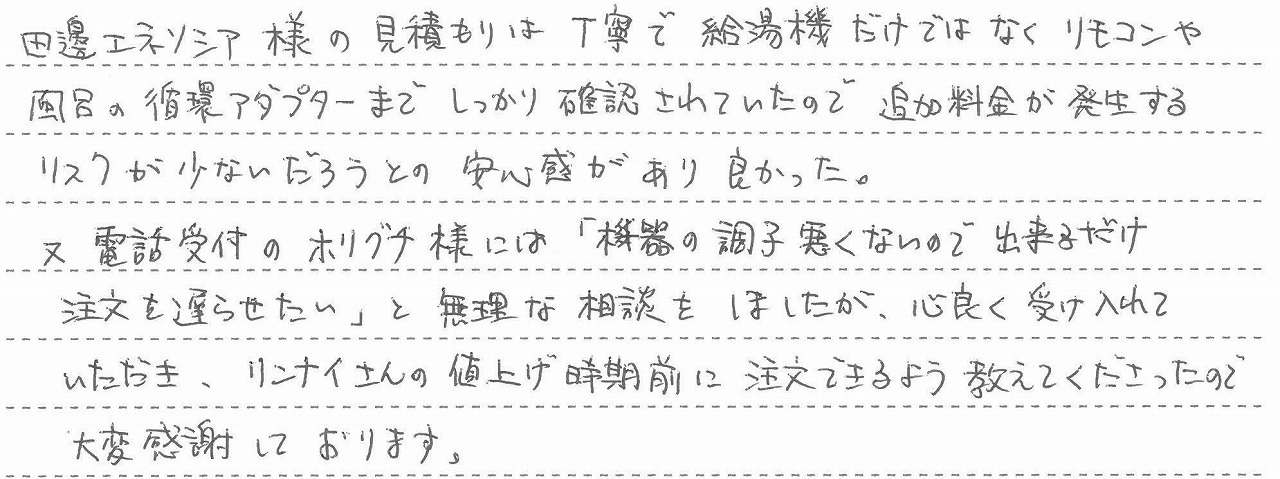 田邊エネソシア様の見積もりは丁寧で給湯機だけではなくリモコンや
風呂の循環アダプターまでしっかり確認されていたので追加料金が発生する
リスクが少ないだろうとの安心感があり良かった。
又電話受付のホリグチ様には「機器の調子悪くないので出来るだけ
注文を遅らせたい」と無理な相談をしましたが、心良く受け入れて
いただき、リンナイさんの値上げ時期前に注文できるよう教えてくださったので
大変感謝しております。